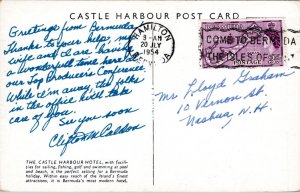 CASTLE HARBOUR POST CARD
Greetings from Bermuda.
Thanks to your help, my
wife and I are having
a wonderful time here at
our Top Producer's Conference.
While I'm away, the folks
in the office will take
care of you.
See you soon
Clifton
THE CASTLE HARBOUR HOTEL, with facili-
ties for sailing, fishing, golf and swimming at pool
and beach, is the perfect setting for a Bermuda
holiday. Within easy reach of the Island's finest
attractions, it is Bermuda's most modern hotel.
HAMILTON
AM
20 JLY
1954
BERMUDA
COME TO BERMUDA
THE ISLES OF
Mr. Lloyd Graham
10 Vernon St.
Nashua, N.H.